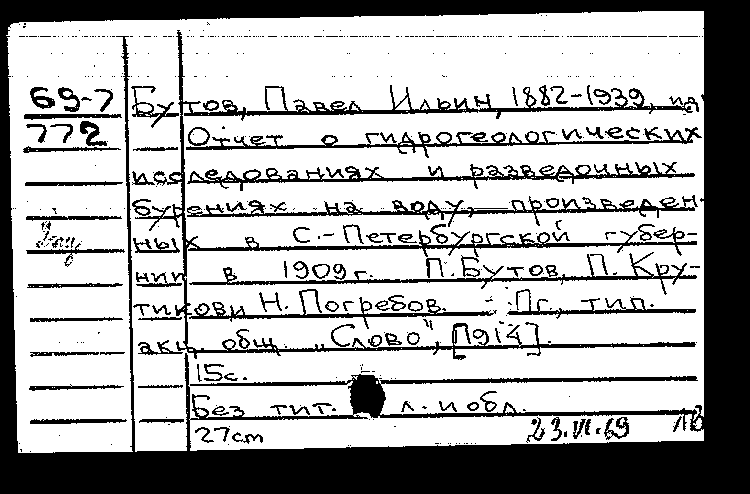 69-7 Бутов, Павел Ильич, 1882-1939, и др
772 Отчет о гидрогеологических
исследованиях и разведочных
бурениях на воду, произведен-
ных в С.-Петербургской губер-
нии в 1909 г. П. Бутов, П. Кру-
тиков и Н. Погребов. - Пг., тип.
акц. общ. „Слово", [1914].
15 с.
Без тит. л. и обл.
27 cm 23.VI.69